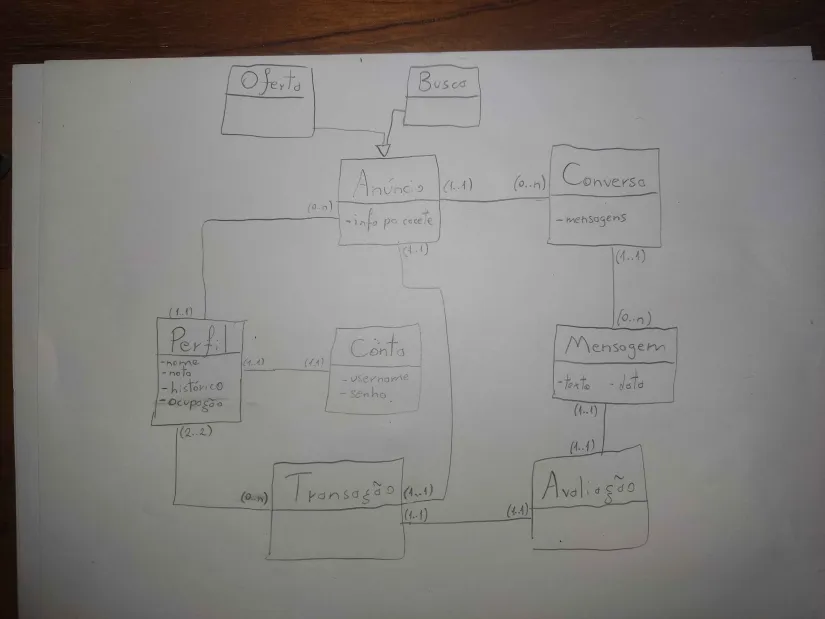 Oferta
Busca
Anúncio
- info pacote
(1..1)
(0..n)
Conversa
- mensagens
(0..n)
(1..1)
(1..1)
(1..1)
(0..n)
Perfil
- nome
- nota
- histórico
- ocupação
(1..1)
(1..1)
Conta
- username
- senha
Mensagem
- texto - data
(2..2)
(1..1)
(1..1)
(0..n)
Transação
(1..1)
(1..1)
(1..1)
Avaliação